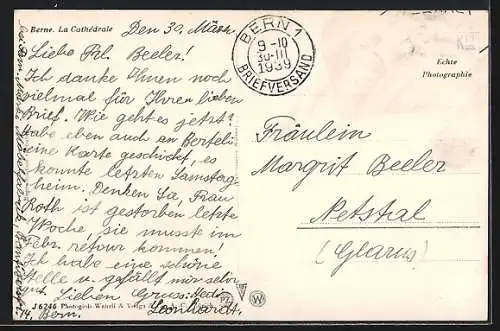 Berne. La Cathédrale
Den 30. März.
Liebe Frl. Beeler!
Ich danke Ihnen noch
vielmal für Ihren lieben
Brief. Wie geht es jetzt?
Habe eben auch an Berteli
eine Karte geschickt, es
konnte letzten Samstag
heim. Denken Sa, Frau
Roth ist gestorben letzte
Woche, sie musste im
Febr. retour kommen!
Ich habe eine schöne
Stelle u. gefällt mir sehr
gut. Lieben Gruss. Hedi
Leonhardt.
14, Bern.
J 6246 Photoglob-Wehrli & Verlag
BERN 1
9-10
30.III
1939
BRIEFVERSAND
Echte
Photographie
Fräulein
Margrit Beeler
Netstal
(Glarus)
W